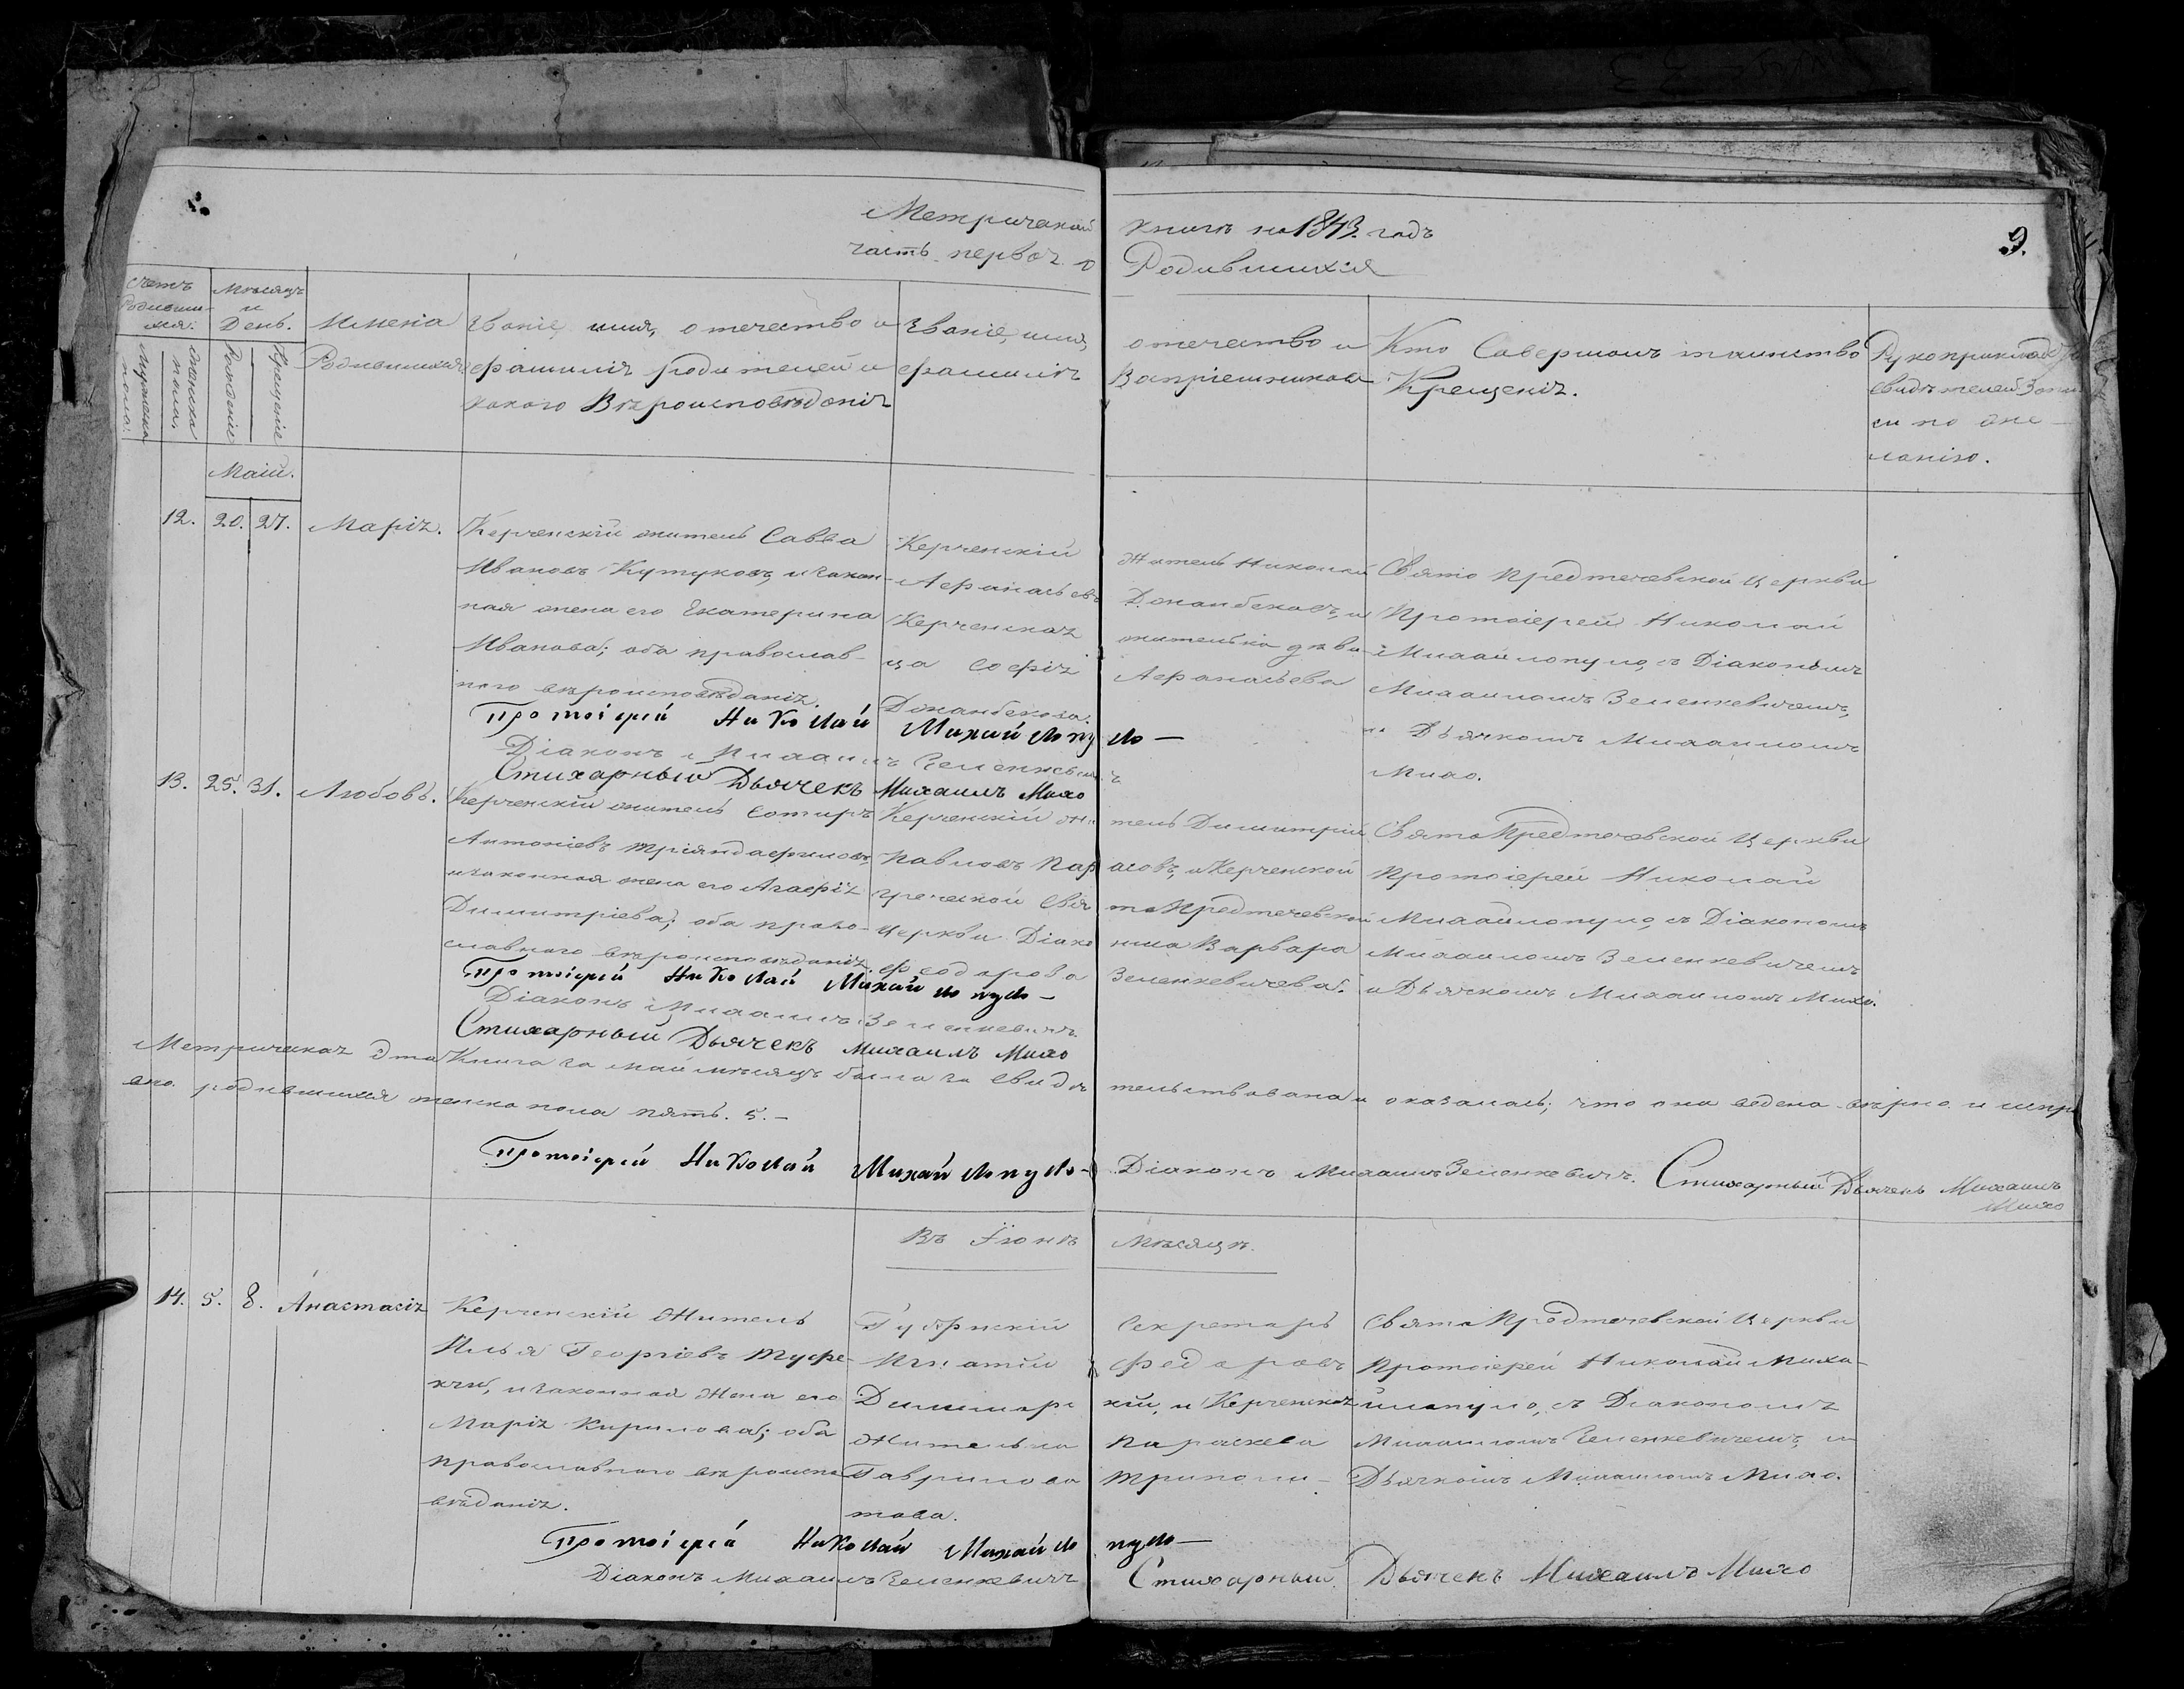 Метрической книги на 1843. годъ
9.
часть первая о Родившихся
Счетъ Родивших-ся.
Мужеска пола.
Женска пола.
Мѣсяцъ и День.
Рожденіе
Крещеніе
Имена Родившихся
Званіе, имя, отечество и
фамилія родителей и
какого Вѣроисповѣданія
Званіе, имя, отечество и
фамилія Воспріемниковъ
Кто Совершалъ таинство
Крещенія.
Рукоприкладство
свидѣтелей Запи
си по же-
ланію.
Маій.
12. 20. 27. Марія.
Керченскій житель Савва
Ивановъ Кутуковъ, и закон-
ная жена его Екатерина
Иванова; оба православ-
наго вѣроисповѣданія.
Керченскій Житель Николай
Афанасьевъ Джанбековъ, и
Керченская жителька дѣви-
ца Софія Афанасьева
Джанбекова.
Свято Предтечевской Церкви
Протоіерей Николай
Михайлопуло, съ Діакономъ
Михаиломъ Зеленкевичемъ,
и Дьячкомъ Михаиломъ
Михо.
Протоіерей Николай Михайлопуло —
Діаконъ Михаилъ Зеленкевичъ
Стихарный Дьячекъ Михаилъ Михо
13. 25. 31. Любовь.
Керченскій житель Сотиръ
Антоніевъ Тріандафиловъ,
и законная жена его Агафія
Димитріева; оба право-
славнаго вѣроисповѣданія.
Керченскій житель Димитрій
Павловъ и Керченской
греческой Свято Предтечевской
Церкви Діаконица Варвара
Федорова Зеленкевичева.
Свято Предтечевской Церкви
Протоіерей Николай
Михайлопуло, съ Діакономъ
Михаиломъ Зеленкевичемъ
и Дьячкомъ Михаиломъ Михо.
Протоіерей Николай Михайлопуло —
Діаконъ Михаилъ Зеленкевичъ.
Стихарный Дьячекъ Михаилъ Михо
Метрическая эта Книга за май мѣсяцъ была за свидѣтельствована и оказалась; что она ведена вѣрно и испра
вно. родившихся женска пола пять. 5. —
Протоіерей Николай Михайлопуло — Діаконъ Михаилъ Зеленкевичъ. Стихарный Дьячекъ Михаилъ
Михо
Въ Іюнѣ Мѣсяцѣ.
14. 5. 8. Анастасія
Керченскій Житель
Илья Георгіевъ Туфе-
кчи, и законная Жена его
Марія Кирилова; оба
православнаго вѣроиспо
вѣданія.
Секретарь
Игнатій Федоровъ
и Керченская
Жителька Параскева
Гаврилова Триполи-
това.
Свято Предтечевской Церкви
Протоіерей Николай Миха-
йлопуло, съ Діакономъ
Михаиломъ Зеленкевичемъ, и
Дьячкомъ Михаиломъ Михо.
Протоіерей Николай Михайлопуло —
Діаконъ Михаилъ Зеленкевичъ Стихарный Дьячекъ Михаилъ Михо